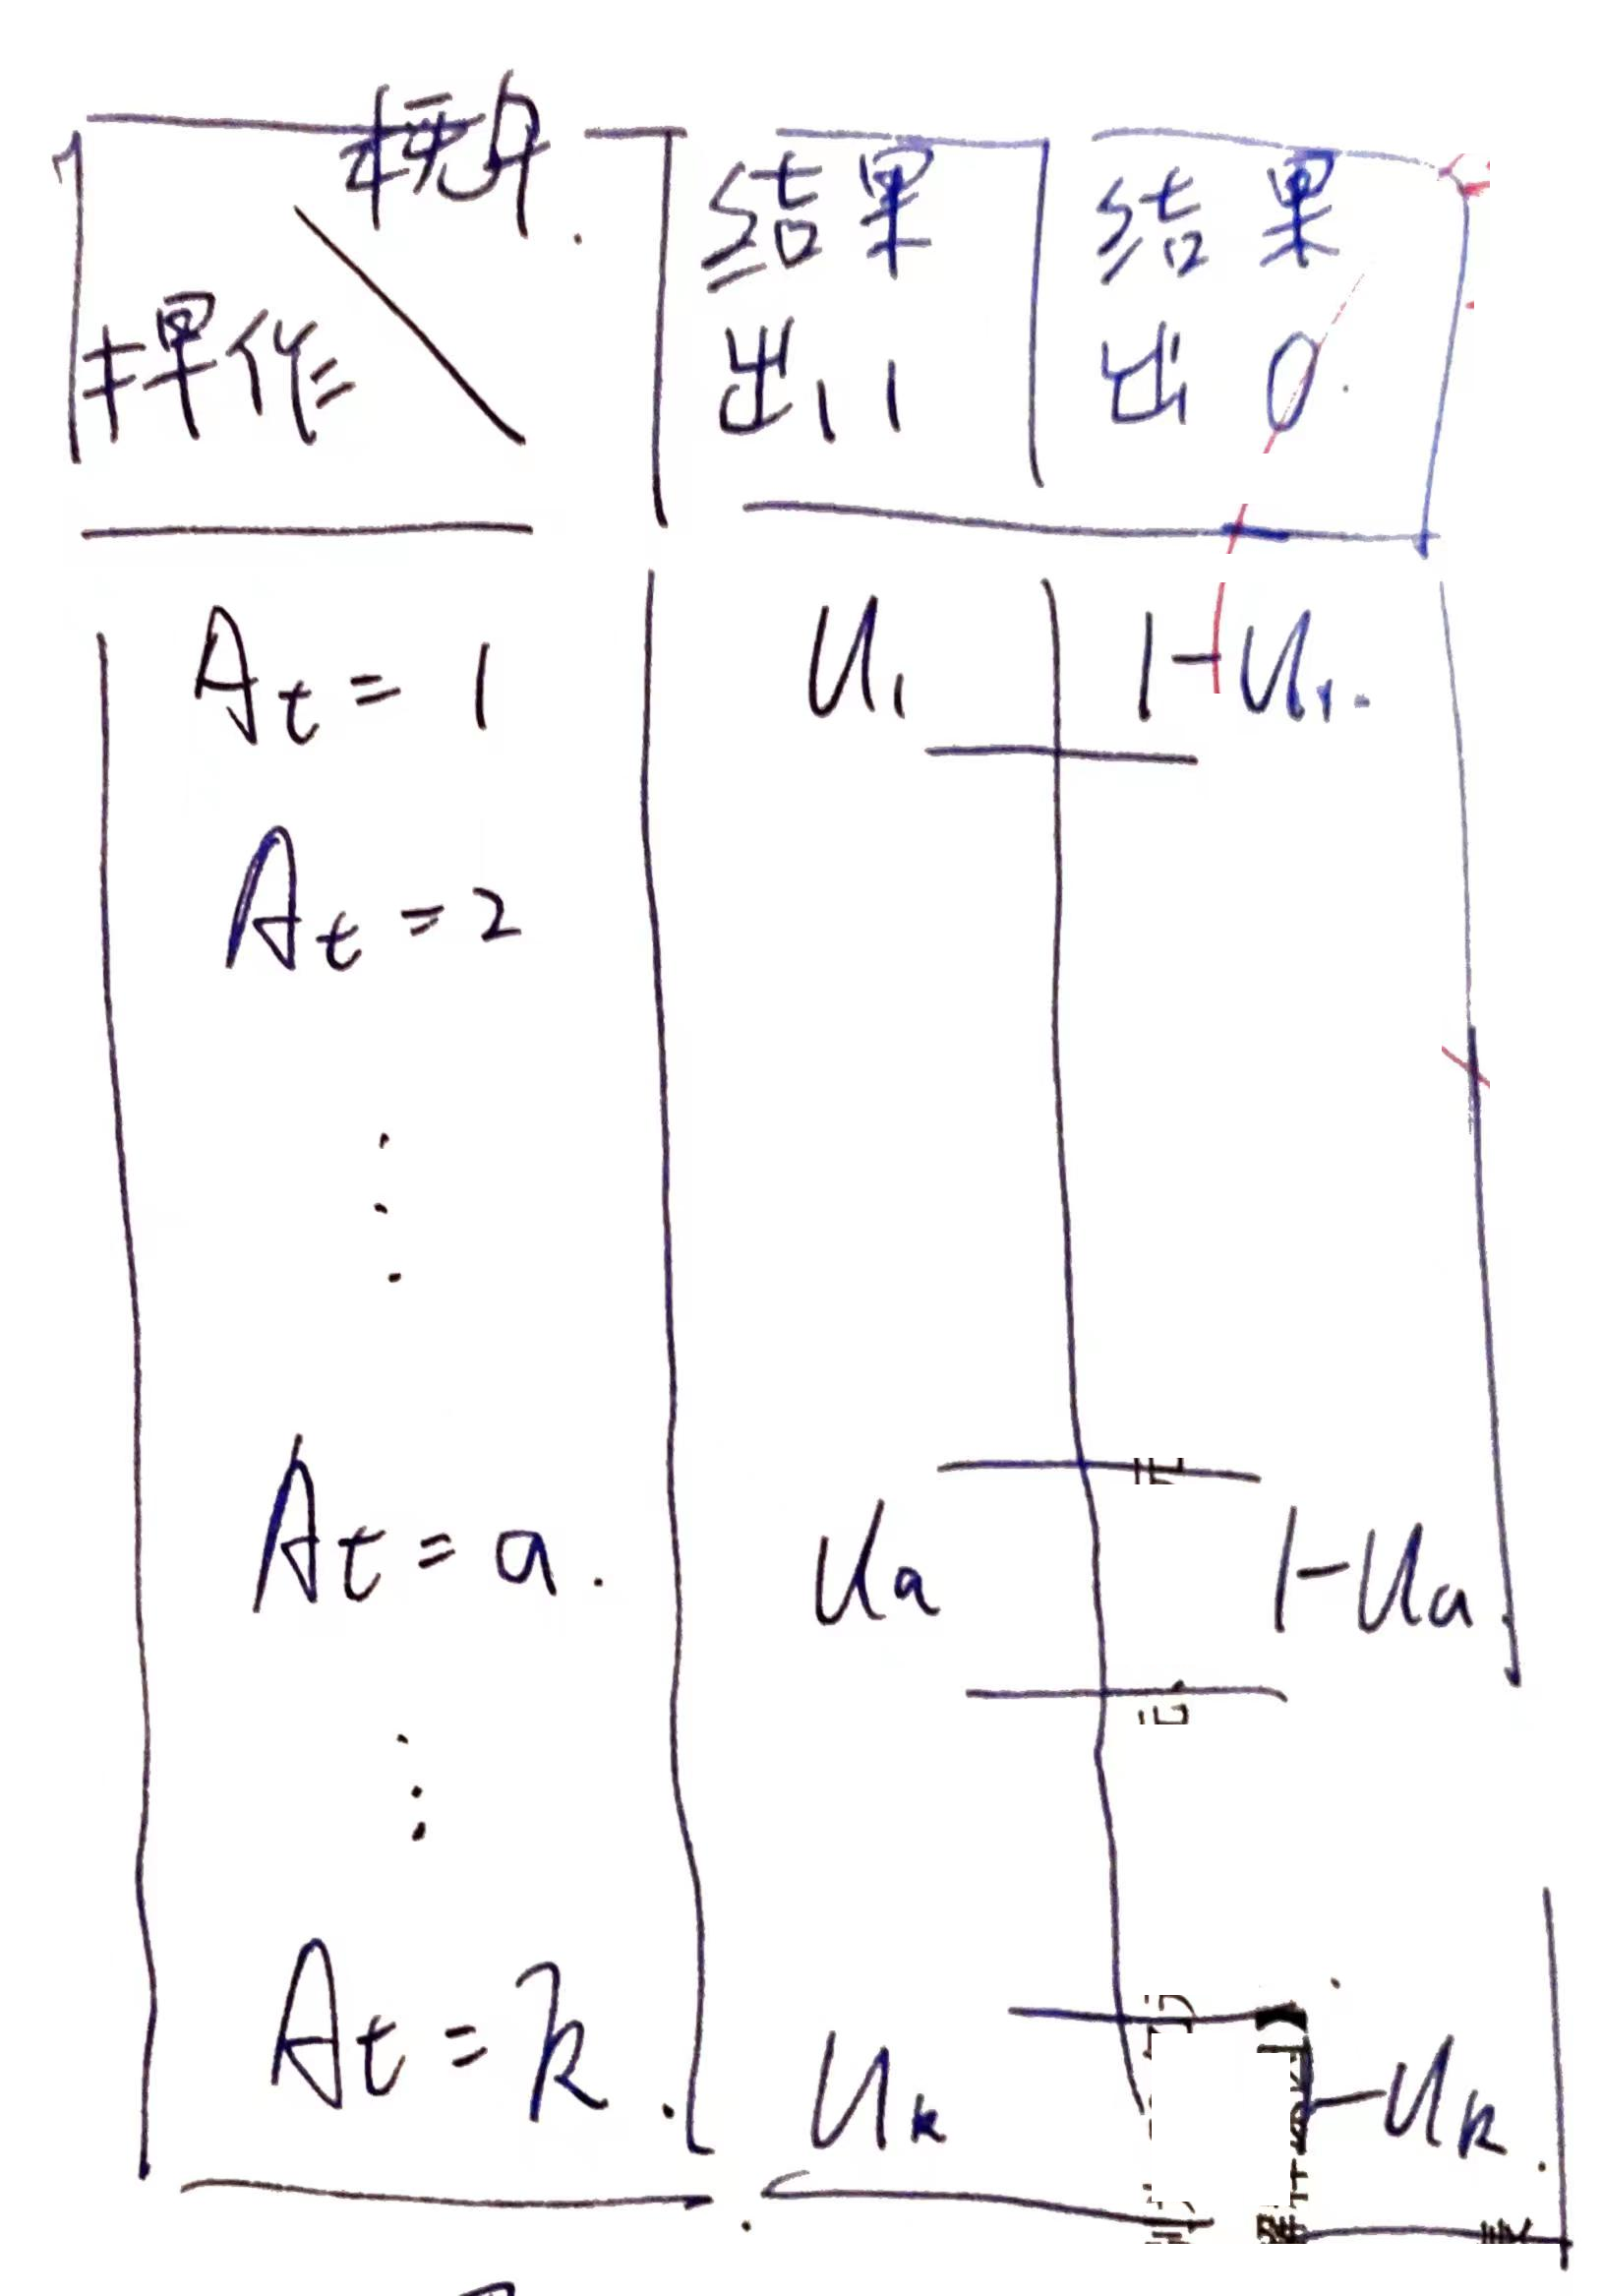 概率.
操作
结果 结果
出1 1 出 0.
At = 1 U1 1-U1.
At = 2
At = a. Ua 1-Ua.
At = k. Uk 1-Uk.